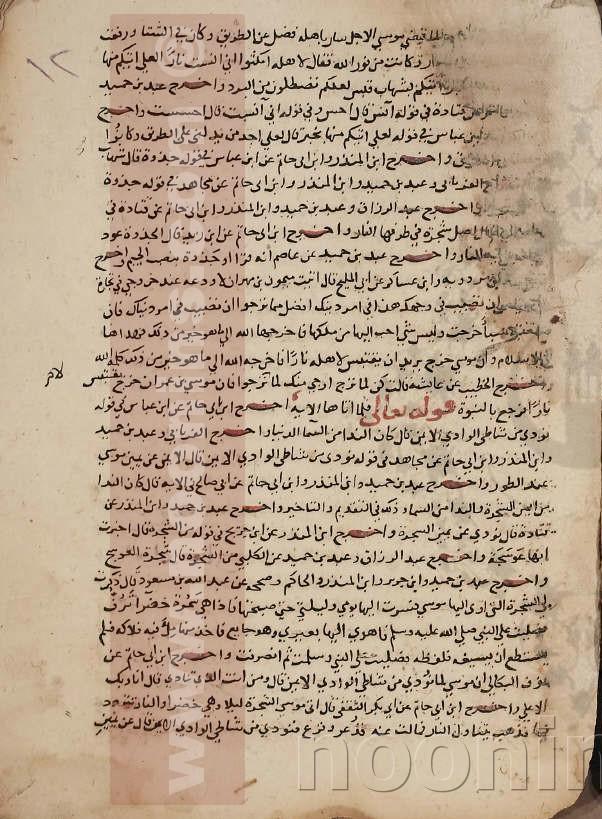 قضى موسى الاجل سار باهله فضل عن الطريق وكان في الشتا ورفعت
نار وكانت من نور الله فقال لاهله امكثوا اني انست نارا لعلي اتيكم منها
اتيكم بشهاب قبس لعلكم تصطلون من البرد واخرج عبد بن حميد
عن قتادة في قوله آنس قال احس وفي قوله اني انست قال احسست واخرج
ابن عباس في قوله لعلي اتيكم منها بخبر قال لعلي اجد من يدلني على الطريق وكانوا
واخرج ابن المنذر وابن ابي حاتم عن ابن عباس في قوله جذوة قال شهاب
الفريابي وعبد بن حميد وابن المنذر وابن ابي حاتم عن مجاهد في قوله جذوة
واخرج عبد الرزاق وعبد بن حميد وابن المنذر وابن ابي حاتم عن قتادة في
اصل شجرة في طرفها النار واخرج ابن ابي حاتم عن ابن زيد قال الجذوة عود
النار واخرج عبد بن حميد عن عاصم انه قرا او جذوة بنصب الجيم واخرج
ابن مردويه وابن عساكر عن ابي المليح قال اتيت ميمون بن مهران لاودعه عند خروجي في تجارة
ان تصيب في وجهك هذا في امر دينك افضل مما ترجوا ان تصيب في امر دنياك فان
سبا خرجت وليس شي احب اليها من ملكها فاخرجها الله الى ما هو خير من ذلك فهداها
الى الاسلام وان موسى خرج يريد ان يقتبس لاهله نارا فاخرجه الله الى ما هو خير من ذلك كلمه الله
واخرج الخطيب عن عائشة قالت كن لما لا ترجو ارجى منك لما ترجوا فان موسى بن عمران خرج يقتبس
نارا فرجع بالنبوة قوله تعالى فلما اتاها الاية اخرج ابن ابي حاتم عن ابن عباس في قوله
نودي من شاطئ الوادي الايمن قال كان الندا من السما الدنيا واخرج الفريابي وعبد بن حميد
وابن المنذر وابن ابي حاتم عن مجاهد في قوله نودي من شاطئ الوادي الايمن قال الايمن عن يمين موسى
عند الطور واخرج عبد بن حميد وابن ابي حاتم عن ابي صالح في الاية قال كان الندا
من ايمن الشجرة والندا من السما وذلك في التقديم والتاخير واخرج عبد بن حميد وابن المنذر عن
قتادة قال نودي عن يمين الشجرة واخرج ابن المنذر عن ابن جريج في قوله من الشجرة قال اخبرت
انها عوسجة واخرج عبد الرزاق وعبد بن حميد عن الكلبي من الشجرة قال شجرة العوسج
واخرج عبد بن حميد وابن جرير وابن المنذر والحاكم وصححه عن عبد الله بن مسعود قال ذكرت
لي الشجرة التي اوى اليها موسى فسرت اليها يومي وليلتي حتى صبحتها فاذا هي سمرة خضرا ترف
فصليت على النبي صلى الله عليه وسلم فاهوى اليها بعيري وهو جايع فاخذ منها مل فيه فلاكه فلم
يستطع ان يسيغه فلفظه فصليت على النبي وسلمت ثم انصرفت واخرج ابن ابي حاتم عن
نوف البكالي ان موسى لما نودي من شاطئ الوادي الايمن قال ومن انت الذي تنادي قال انا ربك
الاعلى واخرج ابن ابي حاتم عن ابي بكر الثقفي قال اتى موسى الشجرة ليلا وهي خضرا والنار تتردد
فيها فذهب يتناول النار فمالت عنه فذعر وفزع فنودي من شاطئ الوادي الايمن قال عن يمين
noonin